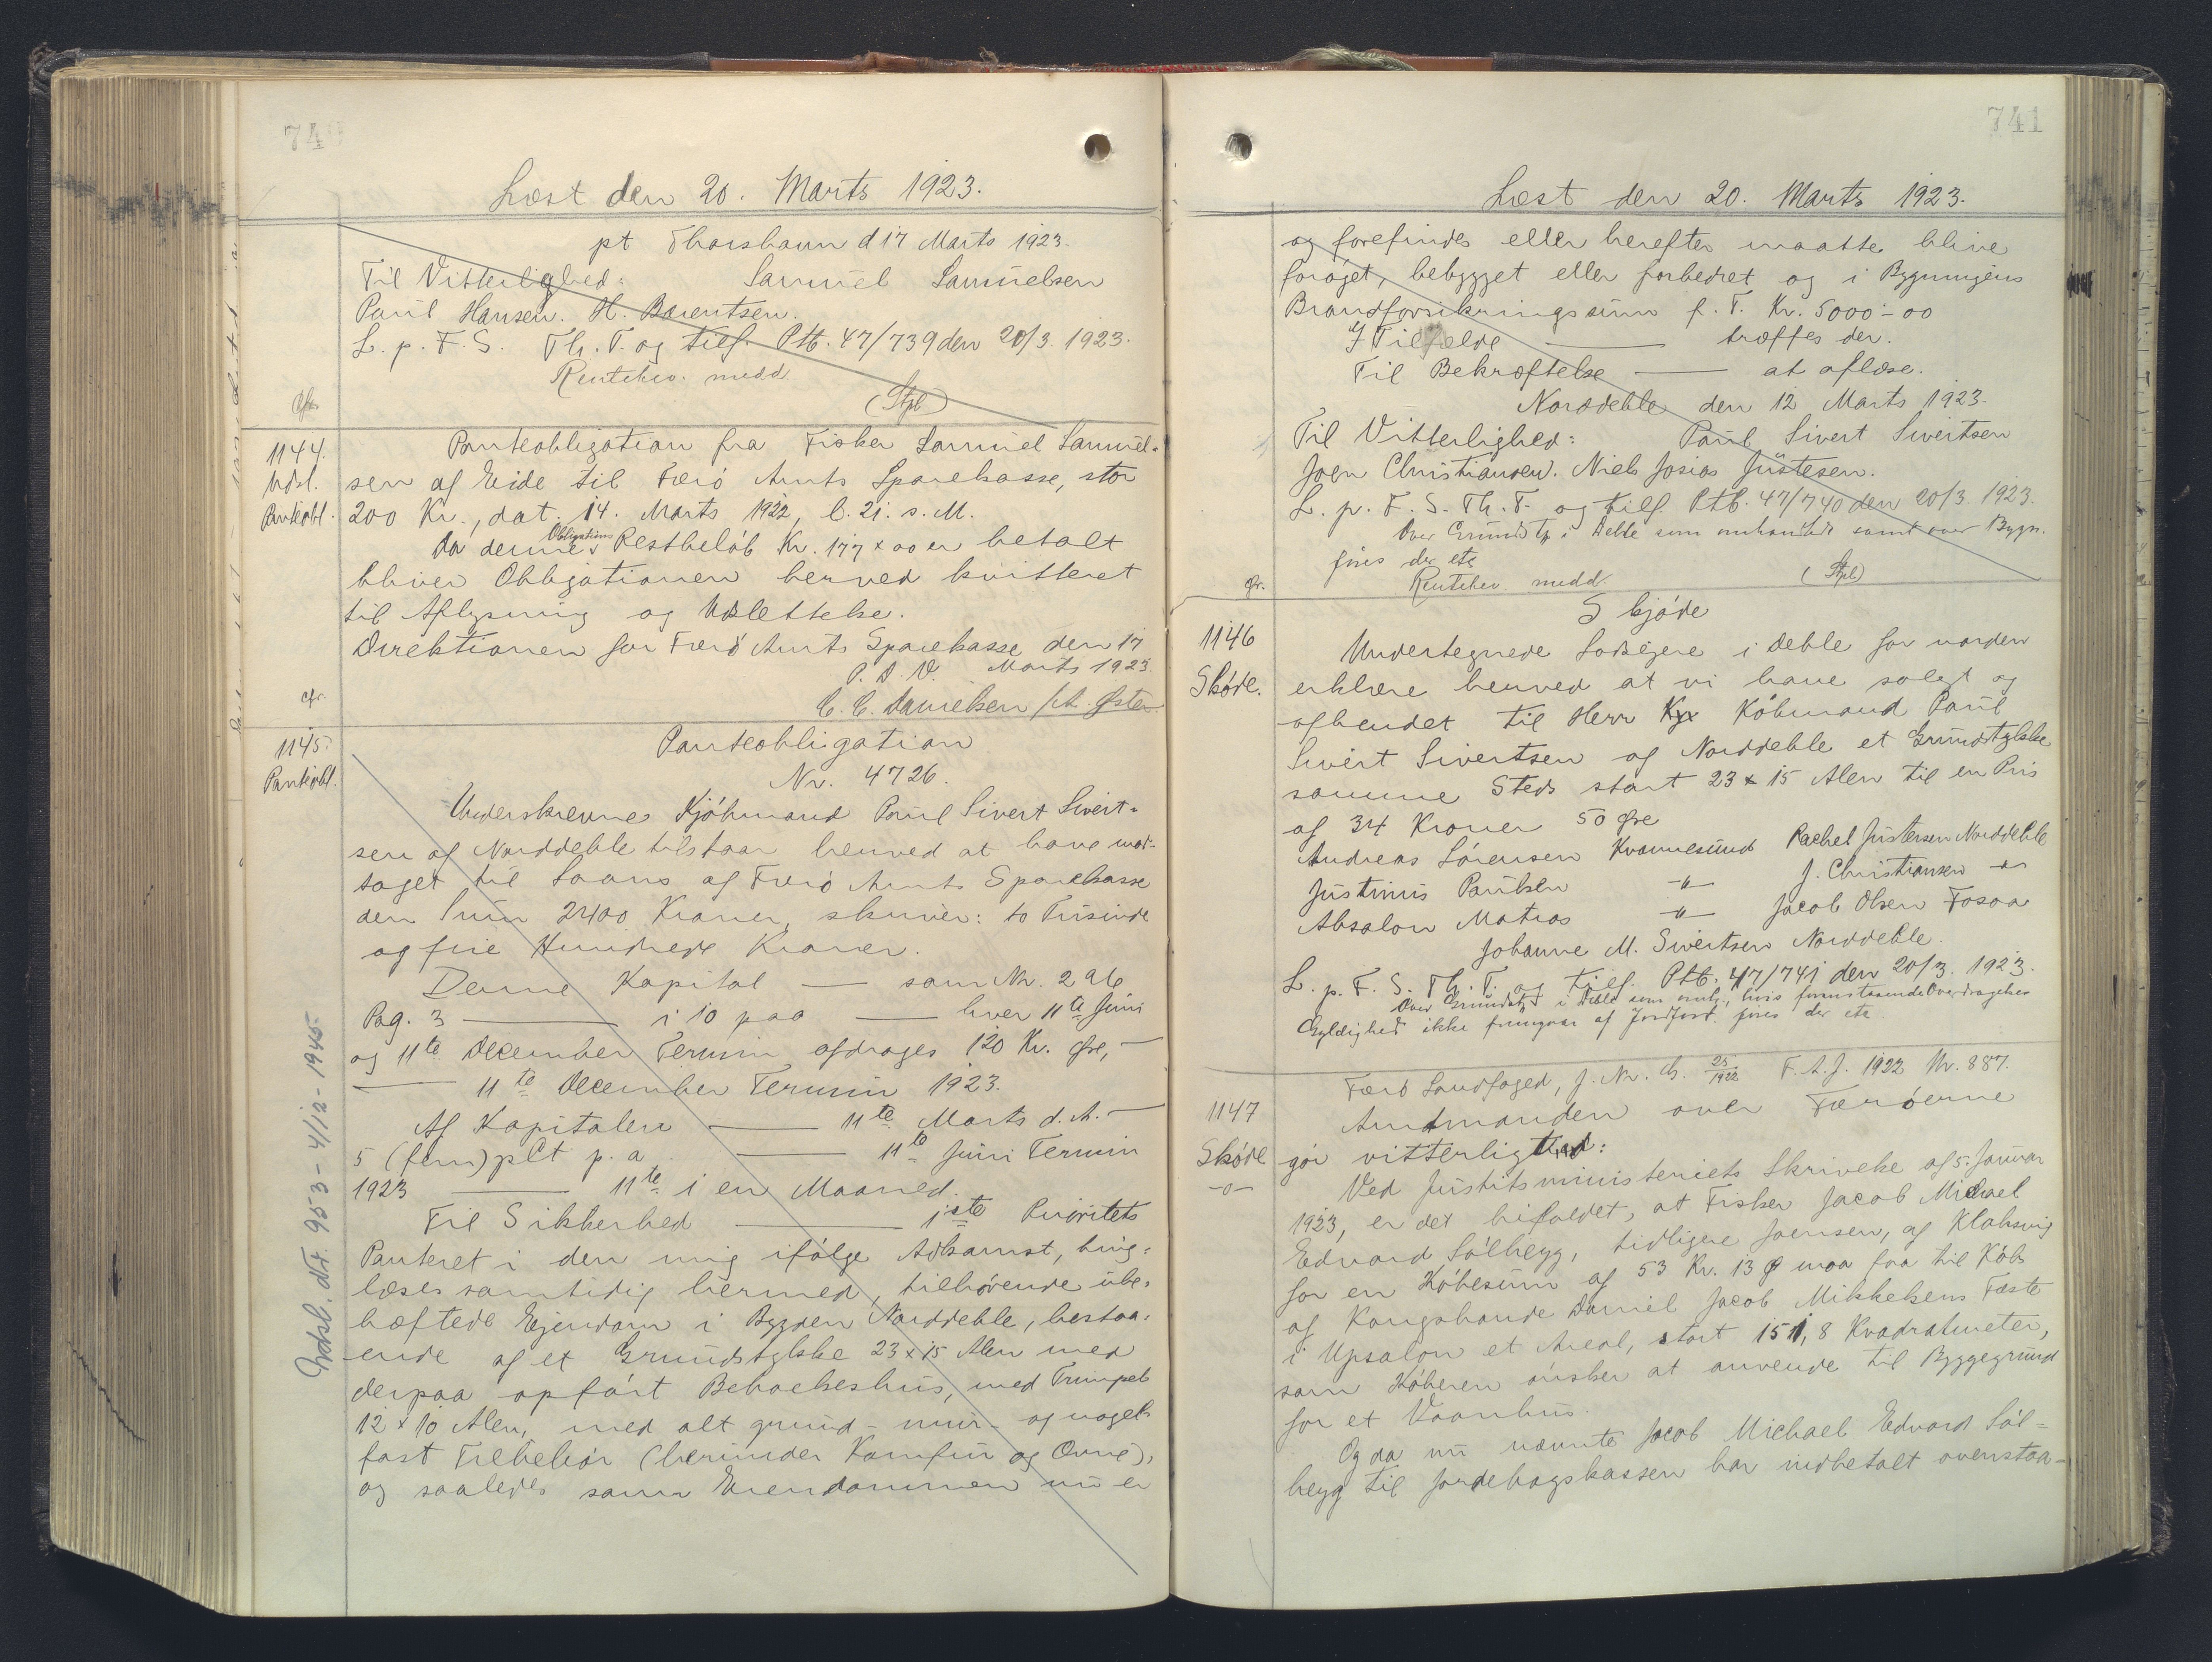 740
Læst den 20. Marts 1923.
pt Thorshavn d 17 Marts 1923.
Til Vitterlighed: Samuel Samuelsen
Paul Hansen. H. Barentsen.
L. p. F. S. Th. T. og tilf. Ptb. 47/739 den 20/3. 1923.
Rentebev. medd
(Stpl)
cfr.
1144.
Udsl.
Panteobl.
Panteobligation fra Fisker Samuel Samuel-
sen af Eide til Færø Amts Sparekasse, stor
200 Kr., dat. 14. Marts 1922, l. 21. s. M.
Da denne Obligations Restbeløb Kr. 177 x 00 er betalt
bliver Obligationen herved kvitteret
til Aflysning og Udslettelse.
Direktionen for Færø Amts Sparekasse den 17
P. D. V. Marts 1923.
C. C. Danielsen /A. Øster
cfr.
1145.
Panteobl.
Panteobligation
Nr. 4726.
Underskrevne Kjøbmand Paul Sivert Sivert-
sen af Norddeble tilstaar herved at have mod-
taget til Laans af Færø Amts Sparekasse
den Sum 2400 Kroner, skriver: to Tusinde
og fire Hundrede Kroner.
Denne Kapital — som Nr. 296
Pag. 3 — i 10 paa — hver 11te Juni
og 11te December Termin afdrages 120 Kr. Øre, —
— 11te December Termin 1923.
Af Kapitalen — 11te Marts d. A. —
5 (fem) pCt p. a — 11te Juni Termin
1923 — 11te i en Maaned.
Til Sikkerhed — 1ste Prioritets
Panteret i den mig ifølge Adkomst, ting-
læses samtidig hermed, tilhørende ube-
hæftede Ejendom i Bygden Norddeble, bestaa-
ende af et Grundstykke 23 x 15 Alen med
derpaa opført Beboelseshus, med Trumpeb
12 x 10 Alen, med alt grund- mur- og nagel-
fast Tilbehør (herunder Komfur og Ovne),
og saaledes som Eiendommen nu er
Udsl. dat. 953 - 4/12 - 1945.
741
Læst den 20. Marts 1923.
og forefindes eller herefter maatte blive
forøget, bebygget eller forbedret og i Bygningens
Brandforsikringssum p. T. Kr. 5000 - 00
I Tilfælde — træffes der.
Til Bekræftelse — at aflæse.
Norddeble den 12 Marts 1923.
Til Vitterlighed: Paul Sivert Sivertsen
Joen Christiansen. Niels Josias Justesen.
L. p. F. S. Th. T. og tilf. Ptb. 47/740 den 20/3. 1923.
Over Grundst. i Deble som omhandlet samt over Bygn.
gives der etc
Rentebev. medd. (Stpl)
cfr.
1146
Skøde.
Skjøde
Undertegnede Lodsejere i Deble for norden
erklære herved at vi have solgt og
afhendet til Herr Købmand Paul
Sivert Sivertsen af Norddeble et Grundstykke
samme Steds stort 23 x 15 Alen til en Pris
af 34 Kroner 50 Øre
Andreas Sørensen Kvannesund Rachel Justesen Norddeble
Justinus Paulsen —"— J. Christiansen —"—
Absalon Matras —"— Jacob Olsen Fosaa
Johanne M. Sivertsen Norddeble.
L. p. F. S. Th. T. og tilf. Ptb. 47/741 den 20/3. 1923.
Over Grundst. i Deble som omh., hvis foranstaaende Overdragelses
Gyldighed ikke fremgaar af Jordfort. gives der etc
1147
Skøde
-o-
Færø Landfoged, J. Nr. G. 25/1922 F. A. J. 1922 Nr. 887.
Amtmanden over Færøerne
gør vitterligt:
Ved Justitsministeriets Skrivelse af 5. Januar
1923, er det bifaldet, at Fisker Jacob Michael
Edvard Sólheyg, tidligere Joensen, af Klaksvig
for en Købesum af 53 Kr. 13 Ø maa faa til Købs
af Kongsbonde Daniel Jacob Mikkelsens Fæste
i Upsalon et Areal, stort 151,8 Kvadratmeter,
som Køberen ønsker at anvende til Byggegrund
for et Vaanhus.
Og da nu nævnte Jacob Michael Edvard Sól-
heyg til Jordebogskassen har indbetalt ovenstaa-